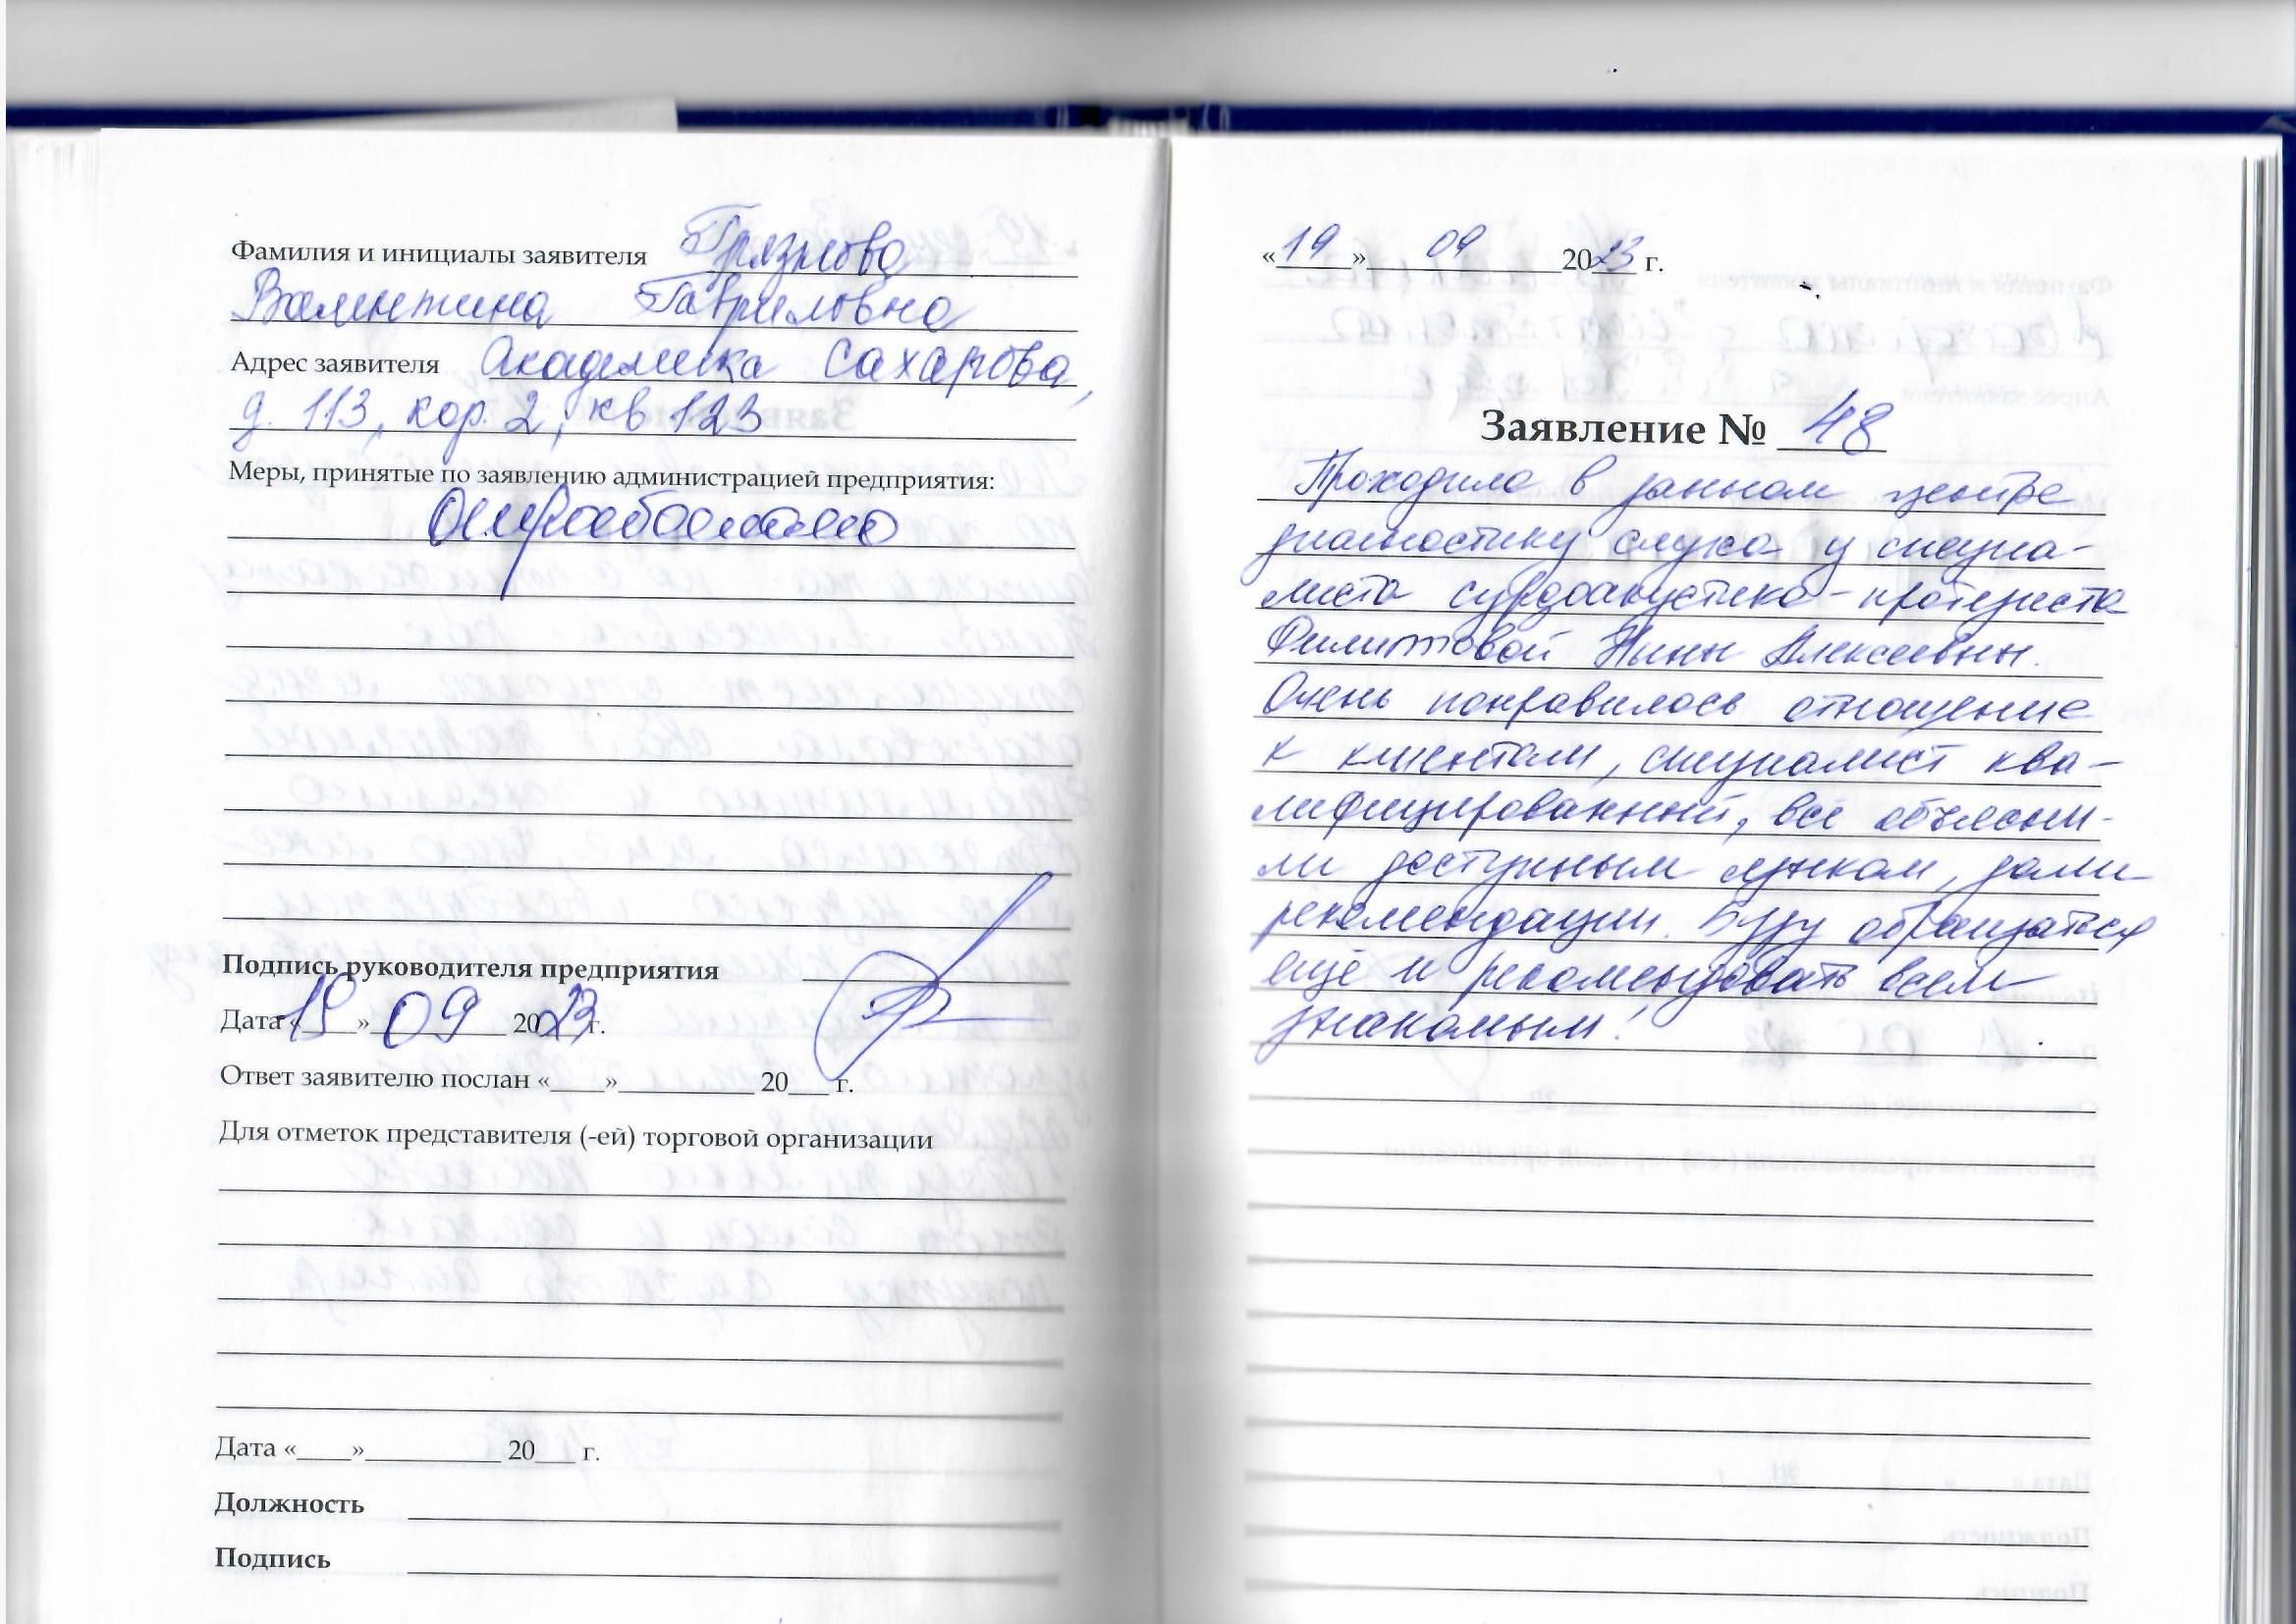 Фамилия и инициалы заявителя Грязнова
Валентина Гавриловна
Адрес заявителя Академика Сахарова,
д. 113, кор. 2, кв 123
Меры, принятые по заявлению администрацией предприятия:
Подпись руководителя предприятия
Дата «19» 09 2023 г.
Ответ заявителю послан «____»__________ 20___ г.
Для отметок представителя (-ей) торговой организации
Дата «____»__________ 20___ г.
Должность
Подпись
«19» 09 2023 г.
Заявление № 48
Проходила в данном центре
диагностику слуха у специа-
листа сурдоакустика-протезиста
Филипповой Нины Алексеевны.
Очень понравилось отношение
к клиентам, специалист ква-
лифицированный, всё объясни-
ли доступным языком, дали
рекомендации. Буду обращаться
ещё и рекомендовать всем
знакомым!